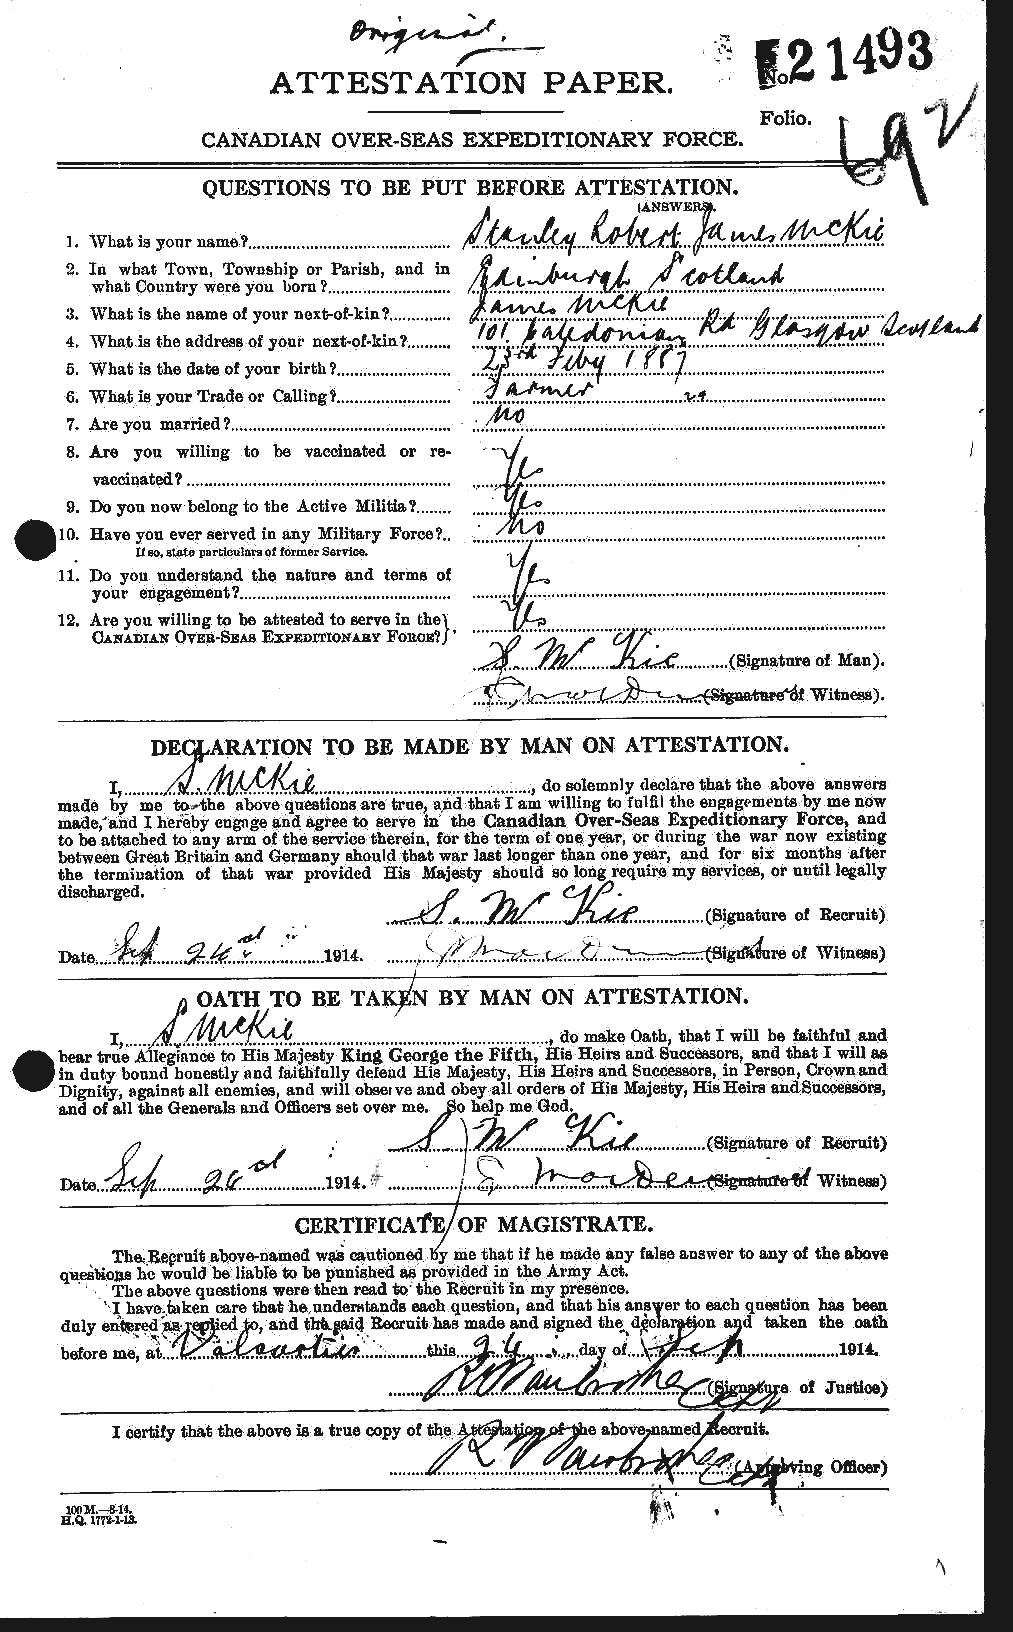 Original.
No. 21493
ATTESTATION PAPER.
Folio. 692
CANADIAN OVER-SEAS EXPEDITIONARY FORCE.
QUESTIONS TO BE PUT BEFORE ATTESTATION.
(ANSWERS).
1. What is your name? Stanley Robert James McKie
2. In what Town, Township or Parish, and in
what Country were you born? Edinburgh Scotland
3. What is the name of your next-of-kin? James McKie
4. What is the address of your next-of-kin? 101 Caledonian Rd Glasgow Scotland
5. What is the date of your birth? 23rd Feby 1887
6. What is your Trade or Calling? Farmer
7. Are you married? No
8. Are you willing to be vaccinated or re-
vaccinated? Yes
9. Do you now belong to the Active Militia? Yes
10. Have you ever served in any Military Force? No
If so, state particulars of former Service.
11. Do you understand the nature and terms of
your engagement? Yes
12. Are you willing to be attested to serve in the
CANADIAN OVER-SEAS EXPEDITIONARY FORCE? Yes
S. McKie (Signature of Man).
(Signature of Witness).
DECLARATION TO BE MADE BY MAN ON ATTESTATION.
I, S. McKie, do solemnly declare that the above answers
made by me to the above questions are true, and that I am willing to fulfil the engagements by me now
made, and I hereby engage and agree to serve in the Canadian Over-Seas Expeditionary Force, and
to be attached to any arm of the service therein, for the term of one year, or during the war now existing
between Great Britain and Germany should that war last longer than one year, and for six months after
the termination of that war provided His Majesty should so long require my services, or until legally
discharged.
S. McKie (Signature of Recruit)
Date Sep 1914. (Signature of Witness)
OATH TO BE TAKEN BY MAN ON ATTESTATION.
I, S McKie, do make Oath, that I will be faithful and
bear true Allegiance to His Majesty King George the Fifth, His Heirs and Successors, and that I will as
in duty bound honestly and faithfully defend His Majesty, His Heirs and Successors, in Person, Crown and
Dignity, against all enemies, and will observe and obey all orders of His Majesty, His Heirs and Successors,
and of all the Generals and Officers set over me. So help me God.
S. McKie (Signature of Recruit)
Date Sep 1914. (Signature of Witness)
CERTIFICATE OF MAGISTRATE.
The Recruit above-named was cautioned by me that if he made any false answer to any of the above
questions he would be liable to be punished as provided in the Army Act.
The above questions were then read to the Recruit in my presence.
I have taken care that he understands each question, and that his answer to each question has been
duly entered as replied to, and the said Recruit has made and signed the declaration and taken the oath
before me, at Valcartier this day of Sep 1914.
(Signature of Justice)
I certify that the above is a true copy of the Attestation of the above-named Recruit.
(Approving Officer)
100 M.—8-14.
H.Q. 1772-1-13.